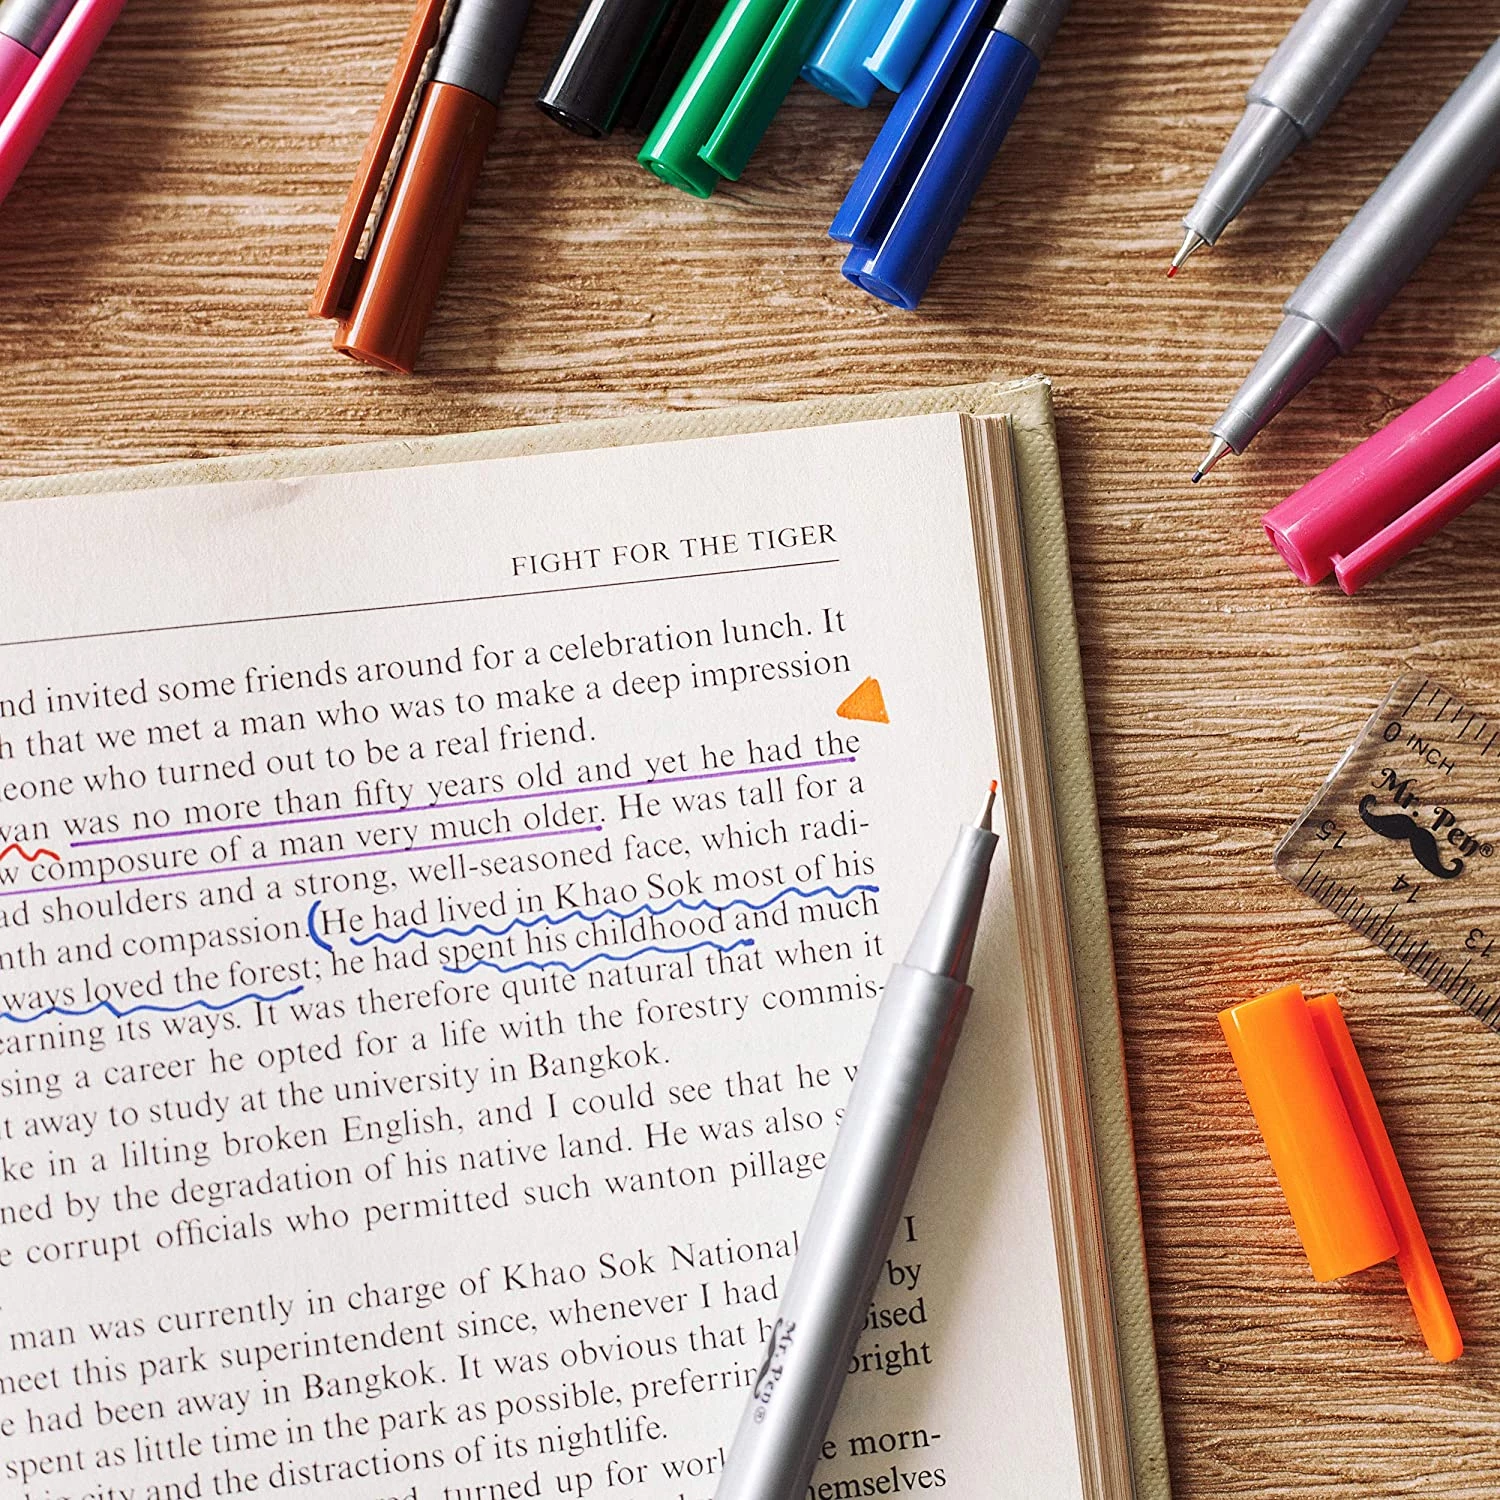 FIGHT FOR THE TIGER
nd invited some friends around for a celebration lunch. It
h that we met a man who was to make a deep impression
eone who turned out to be a real friend.
wan was no more than fifty years old and yet he had the
w composure of a man very much older. He was tall for a
ad shoulders and a strong, well-seasoned face, which radi-
nth and compassion. (He had lived in Khao Sok most of his
ways loved the forest; he had spent his childhood and much
earning its ways. It was therefore quite natural that when it
sing a career he opted for a life with the forestry commis-
t away to study at the university in Bangkok.
ke in a lilting broken English, and I could see that he w
ned by the degradation of his native land. He was also s
e corrupt officials who permitted such wanton pillage
man was currently in charge of Khao Sok National I
meet this park superintendent since, whenever I had by
e had been away in Bangkok. It was obvious that h oised
spent as little time in the park as possible, preferrin bright
city and the distractions of its nightlife.
turned up for work e morn-
emselves
Mr. Pen®
0 INCH
Mr. Pen®
15
14
13